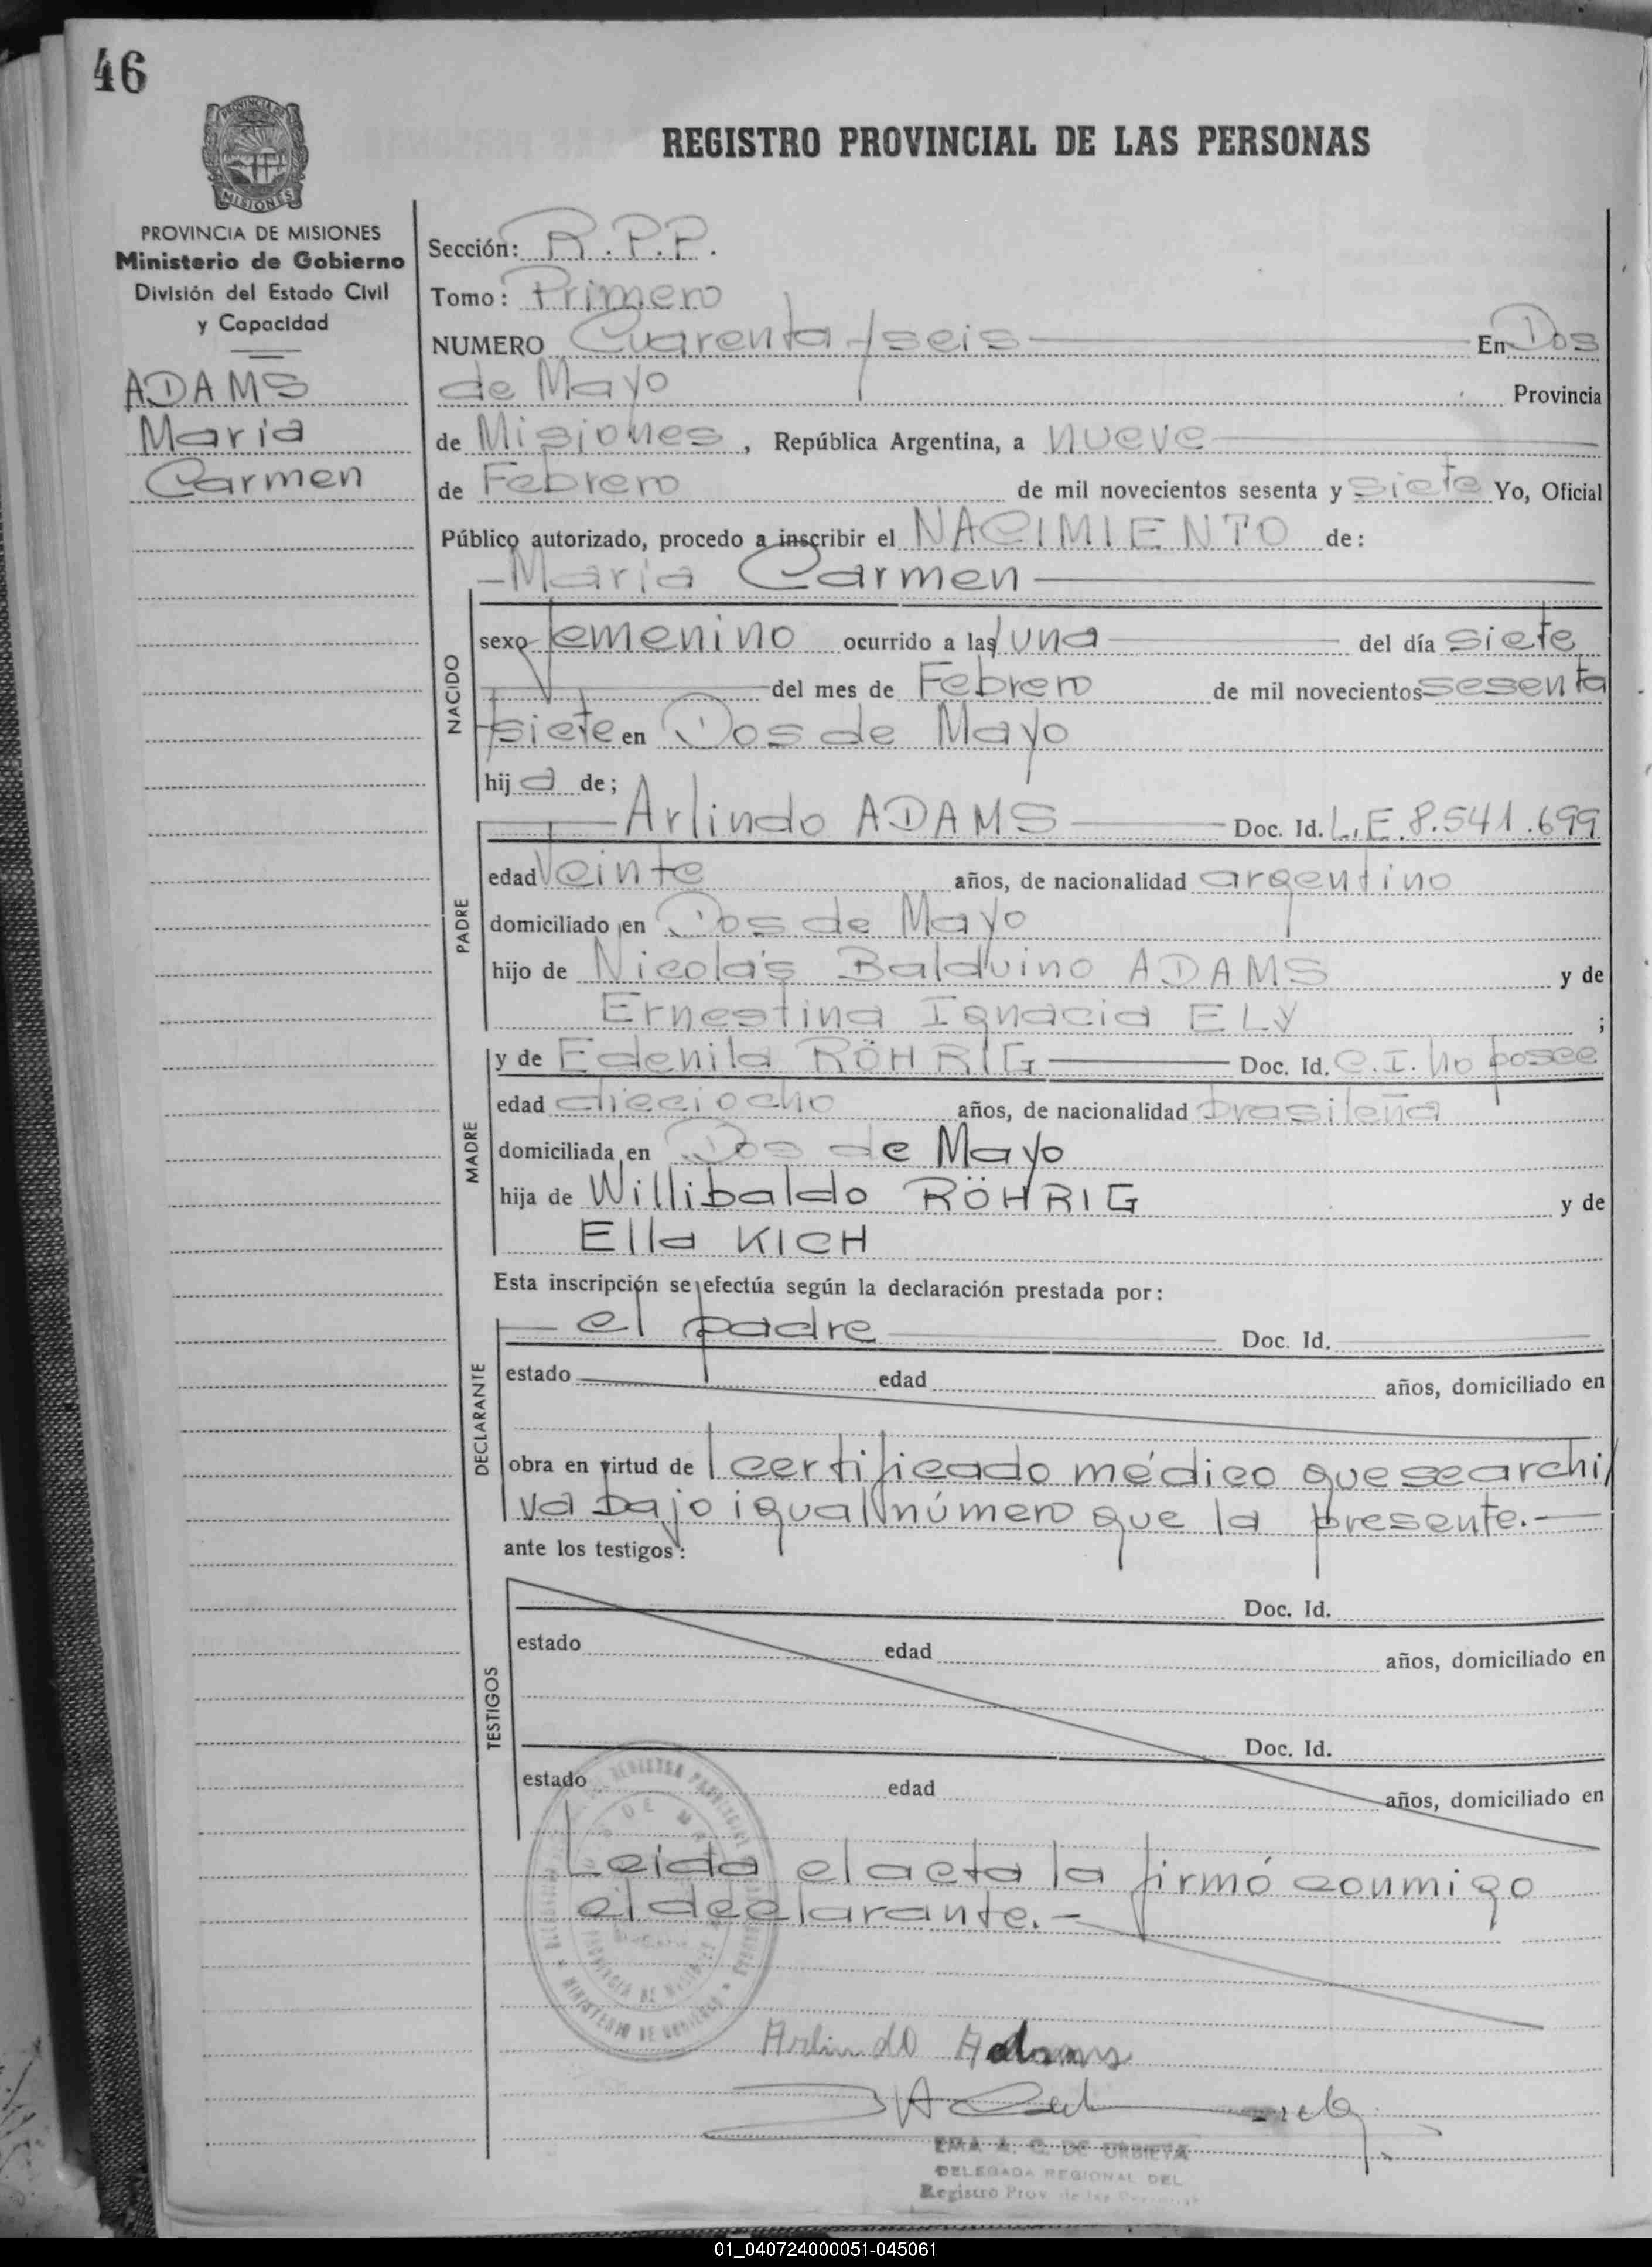 46
PROVINCIA DE
MISIONES
REGISTRO PROVINCIAL DE LAS PERSONAS
PROVINCIA DE MISIONES
Ministerio de Gobierno
División del Estado Civil
y Capacidad
ADAMS
Maria
Carmen
Sección: R.P.P.
Tomo: Primero
NUMERO Cuarenta y seis En Dos
de Mayo Provincia
de Misiones, República Argentina, a nueve
de Febrero de mil novecientos sesenta y siete Yo, Oficial
Público autorizado, procedo a inscribir el NACIMIENTO de:
Maria Carmen
NACIDO
sexo femenino ocurrido a las una del día siete
del mes de Febrero de mil novecientos sesenta
y siete en Dos de Mayo
hij a de;
PADRE
Arlindo ADAMS Doc. Id. L.E. 8.541.699
edad veinte años, de nacionalidad argentino
domiciliado en Dos de Mayo
hijo de Nicolás Balduino ADAMS y de
Ernestina Ignacia ELY ;
MADRE
y de Edenila RÖHRIG Doc. Id. C.I. no posee
edad dieciocho años, de nacionalidad brasileña
domiciliada en Dos de Mayo
hija de Willibaldo RÖHRIG y de
Ella KICH
Esta inscripción se efectúa según la declaración prestada por:
DECLARANTE
el padre Doc. Id.
estado edad años, domiciliado en
obra en virtud de certificado médico que se archi
va bajo igual número que la presente.-
ante los testigos:
TESTIGOS
Doc. Id.
estado edad años, domiciliado en
Doc. Id.
estado edad años, domiciliado en
Leida el acta la firmó conmigo
el declarante.-
PROVINCIA DE MISIONES
MINISTERIO DE GOBIERNO
Arlindo Adams
EMA A. C. DE URBIETA
DELEGADA REGIONAL DEL
Registro Prov. de las Personas
01_040724000051-045061